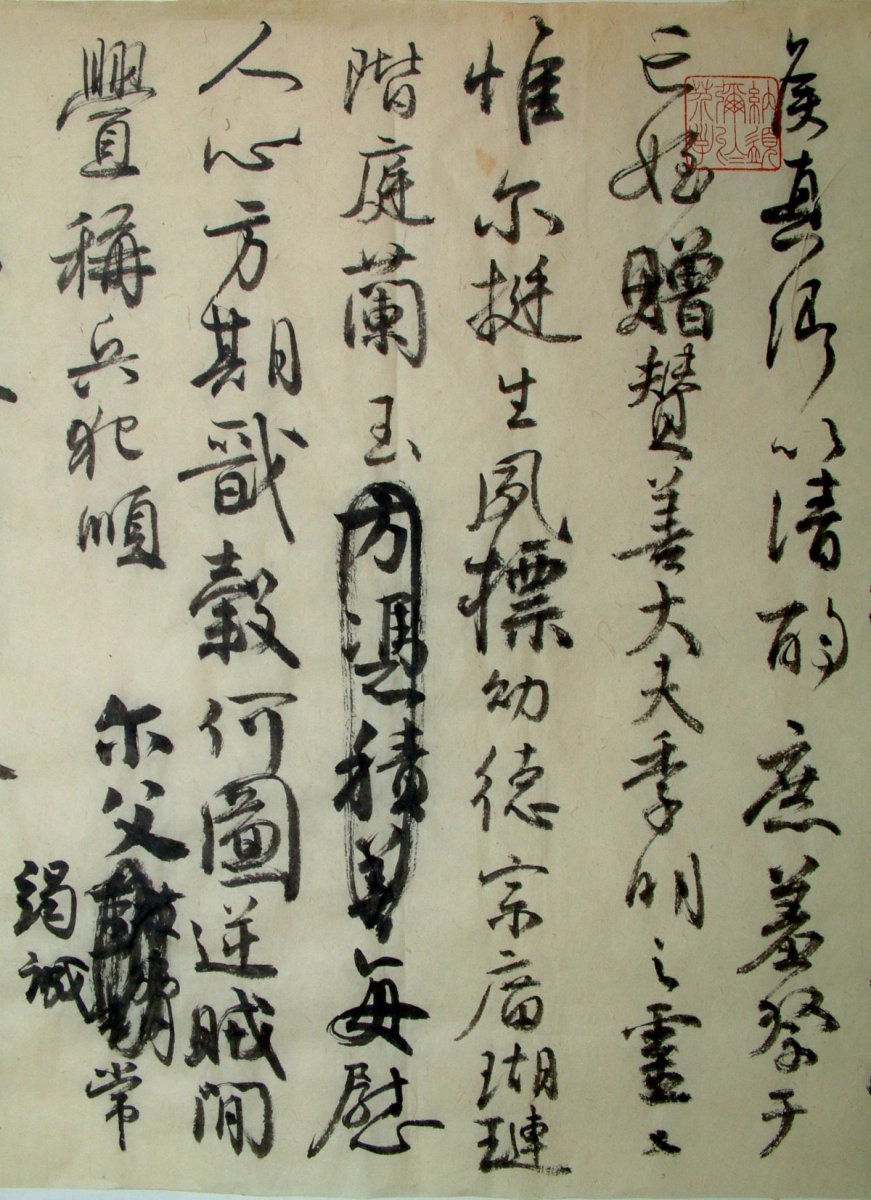 侯真卿以清酌庶羞祭于
亡姪贈贊善大夫季明之靈曰
惟尔挺生夙標幼德宗廟瑚璉
階庭蘭玉方憑積善每慰
人心方期戩穀何圖逆賊閒
舋稱兵犯順尔父常
竭誠